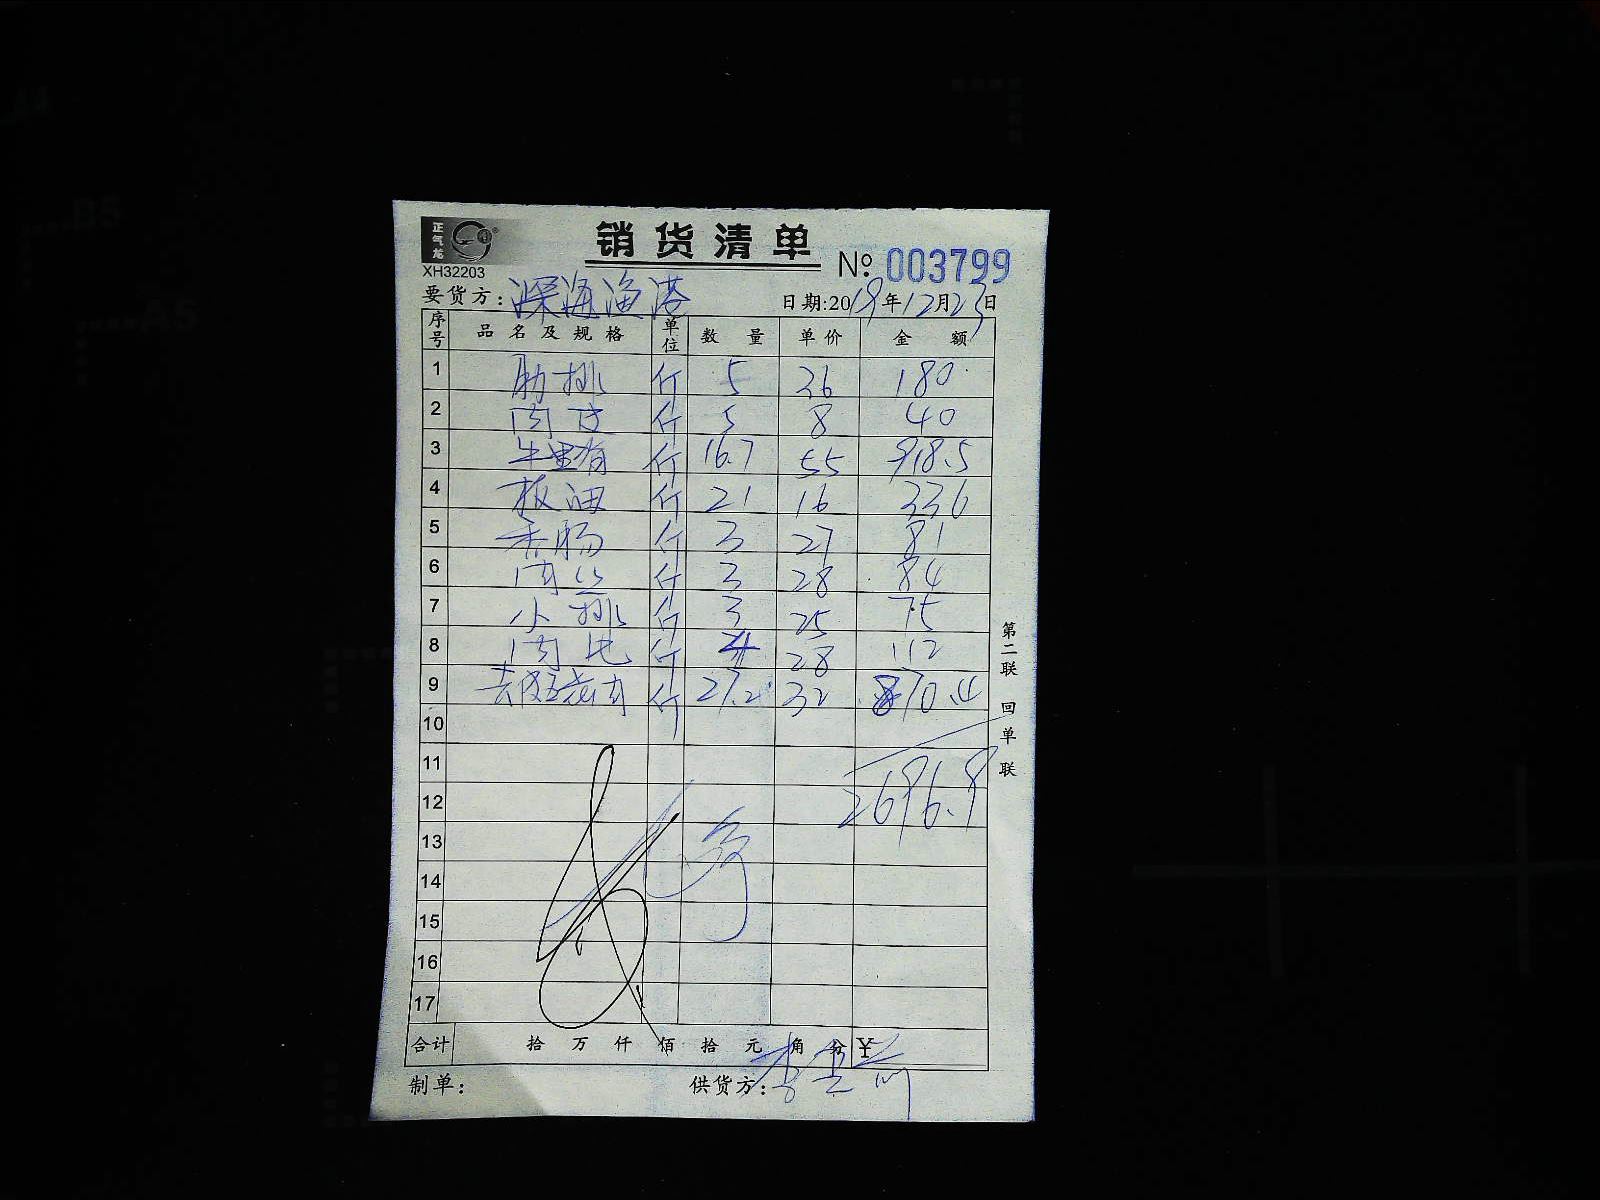 正气龙
销货清单
XH32203
№ 003799
要货方:深海渔港 日期:2019年12月23日
序号 品名及规格 单位 数量 单价 金额
1 肋排 斤 5 36 180
2 肉皮 斤 5 8 40
3 牛里脊 斤 16.7 55 918.5
4 板油 斤 21 16 336
5 香肠 斤 3 27 81
6 肉丝 斤 3 28 84
7 小排 斤 3 25 75
8 肉 斤 4 28 112
9 去皮五花肉 斤 27.2 32 870.4
10
11
2696.9
12
13
14
15
16
17
合计 拾 万 仟 佰 拾 元 角 分 ¥
制单: 供货方:李
第二联 回单联